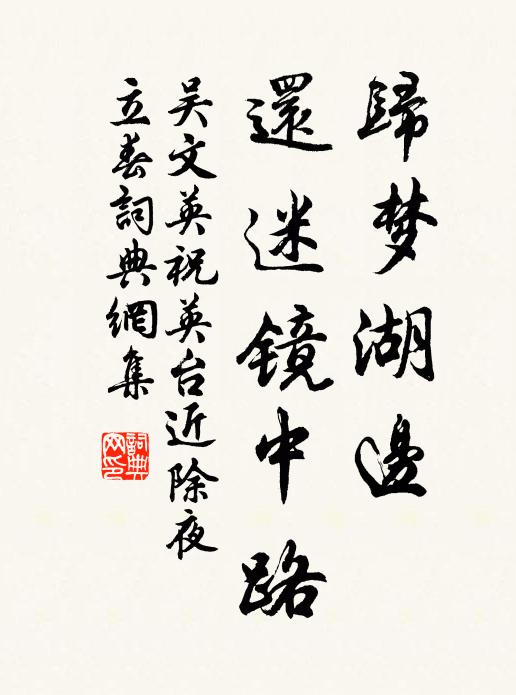 歸梦湖邊
還迷镜中路
吴文英祝英台近除夜
立春詞典網集
詞典网印